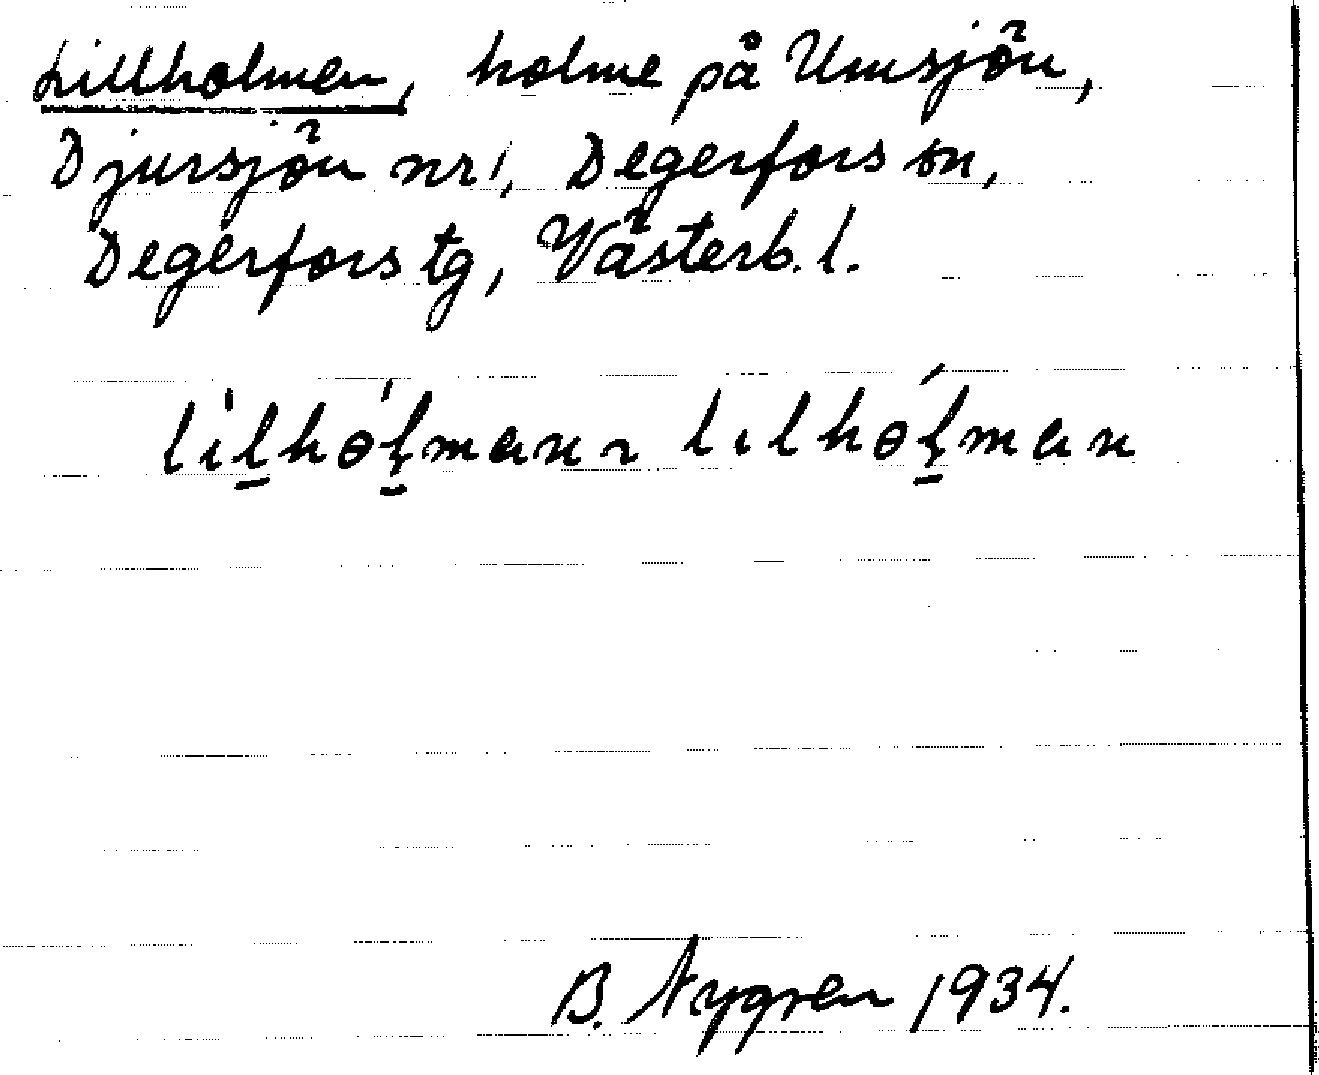 Lillholmen, holme på Umsjön,
Djursjön nr 1, Degerfors sn,
Degerfors tg, Västerb. l.
lìl̠hól̠man ~ lılhól̠man
B. Nygren 1934.